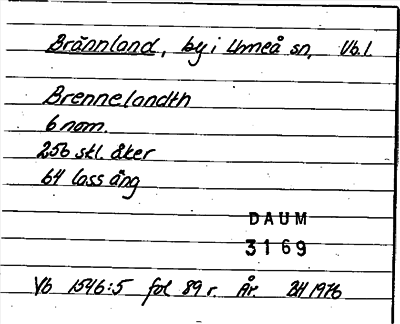 Brännland, by i Umeå sn, Vb.l.
Brennelandth
6 nam.
256 skl. åker
64 lass äng
DAUM
3169
Vb 1546:5 fol 89 r. År. 24 1976